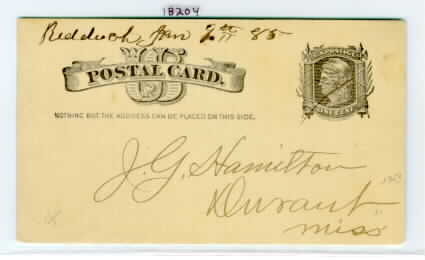 18204
Reddock, Jan 7th 85
US
POSTAL CARD.
NOTHING BUT THE ADDRESS CAN BE PLACED ON THIS SIDE.
J. G. Hamilton
Durant
Miss